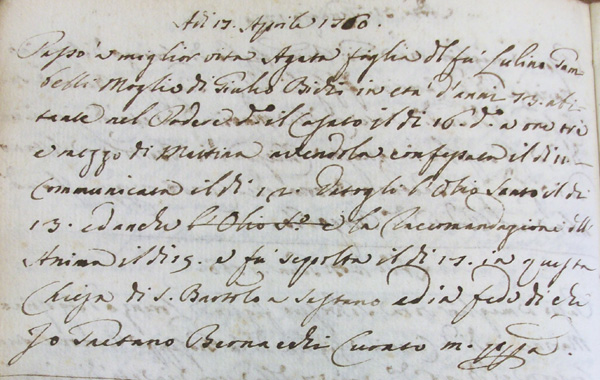 Adi 17. Aprile 1760.
Passò a miglior vita Agata figlia del fù Lelino Tam
belli Moglie di Giulio Bichi in età d'anni 73. abi
tante nel Podere dº il Casato il di 16 dº a ore tre
e mezzo di Mattina avendola confessata il di 11.
Communicata il di 12. Datogli l'Olio Santo il di
13. ed anche l'Olio Sº e la Raccomandazione dell'
Anima il di 15. e fù sepolta il di 17. in questa
Chiesa di S. Bartolo a Sestano ed in fede di che
Io Gaetano Bernacchi Curato m. pppa.